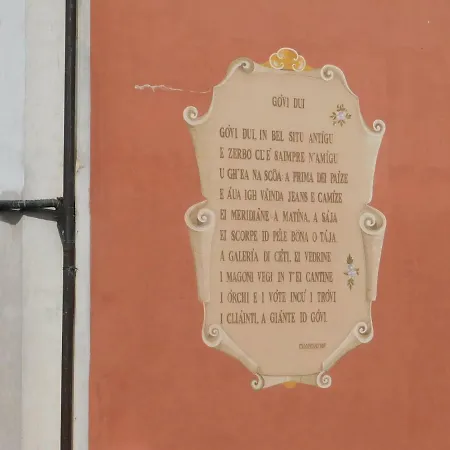 GÖVI DUI
GÖVI DUI, IN BEL SITU ANTÍGU
E ZERBO CU'É SAIMPRE N'AMÍGU
U GH'EA NA SCÖA A PRIMA DEI PAÍZE
E ÁUA IGH VÁINDA JEANS E CAMÍZE
EI MERIDIÁNE A MATÍNA, A SÁJA
EI SCORPE ID PÉLE BÓNA O TÁJA,
A GALERÍA DI CÉTI, EI VEDRINE
I MAGONI VEGI IN T'EI CANTINE
I ÓRCHI E I VÓTE INCÚ I TRÓVI
I CLIÁINTI, A GIÁNTE ID GÖVI.